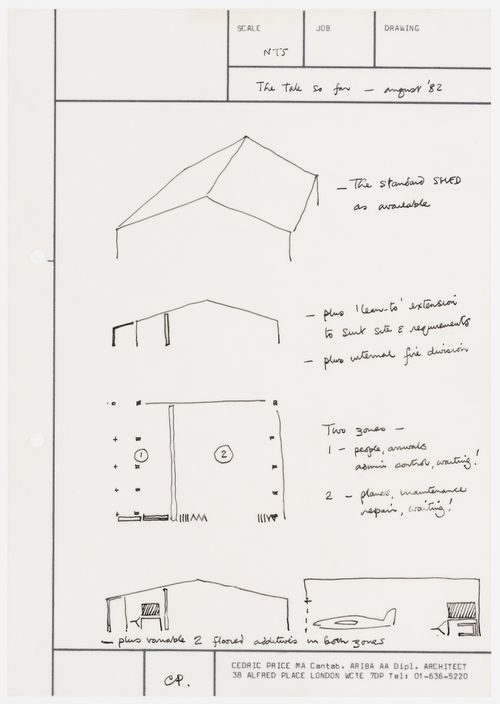 SCALE JOB DRAWING
NTS
The Tale so far — august '82
— The standard SHED
as available
— plus 'lean-to' extension
to suit site & requirements
— plus internal fire division
Two zones —
1 — people, arrivals
admin control, waiting!
2 — planes, maintenance
repair, waiting!
1 2
— plus variable 2 floored additives in both zones
CP.
CEDRIC PRICE MA Cantab. ARIBA AA Dipl. ARCHITECT
38 ALFRED PLACE LONDON WC1E 7DP Tel: 01-636-5220